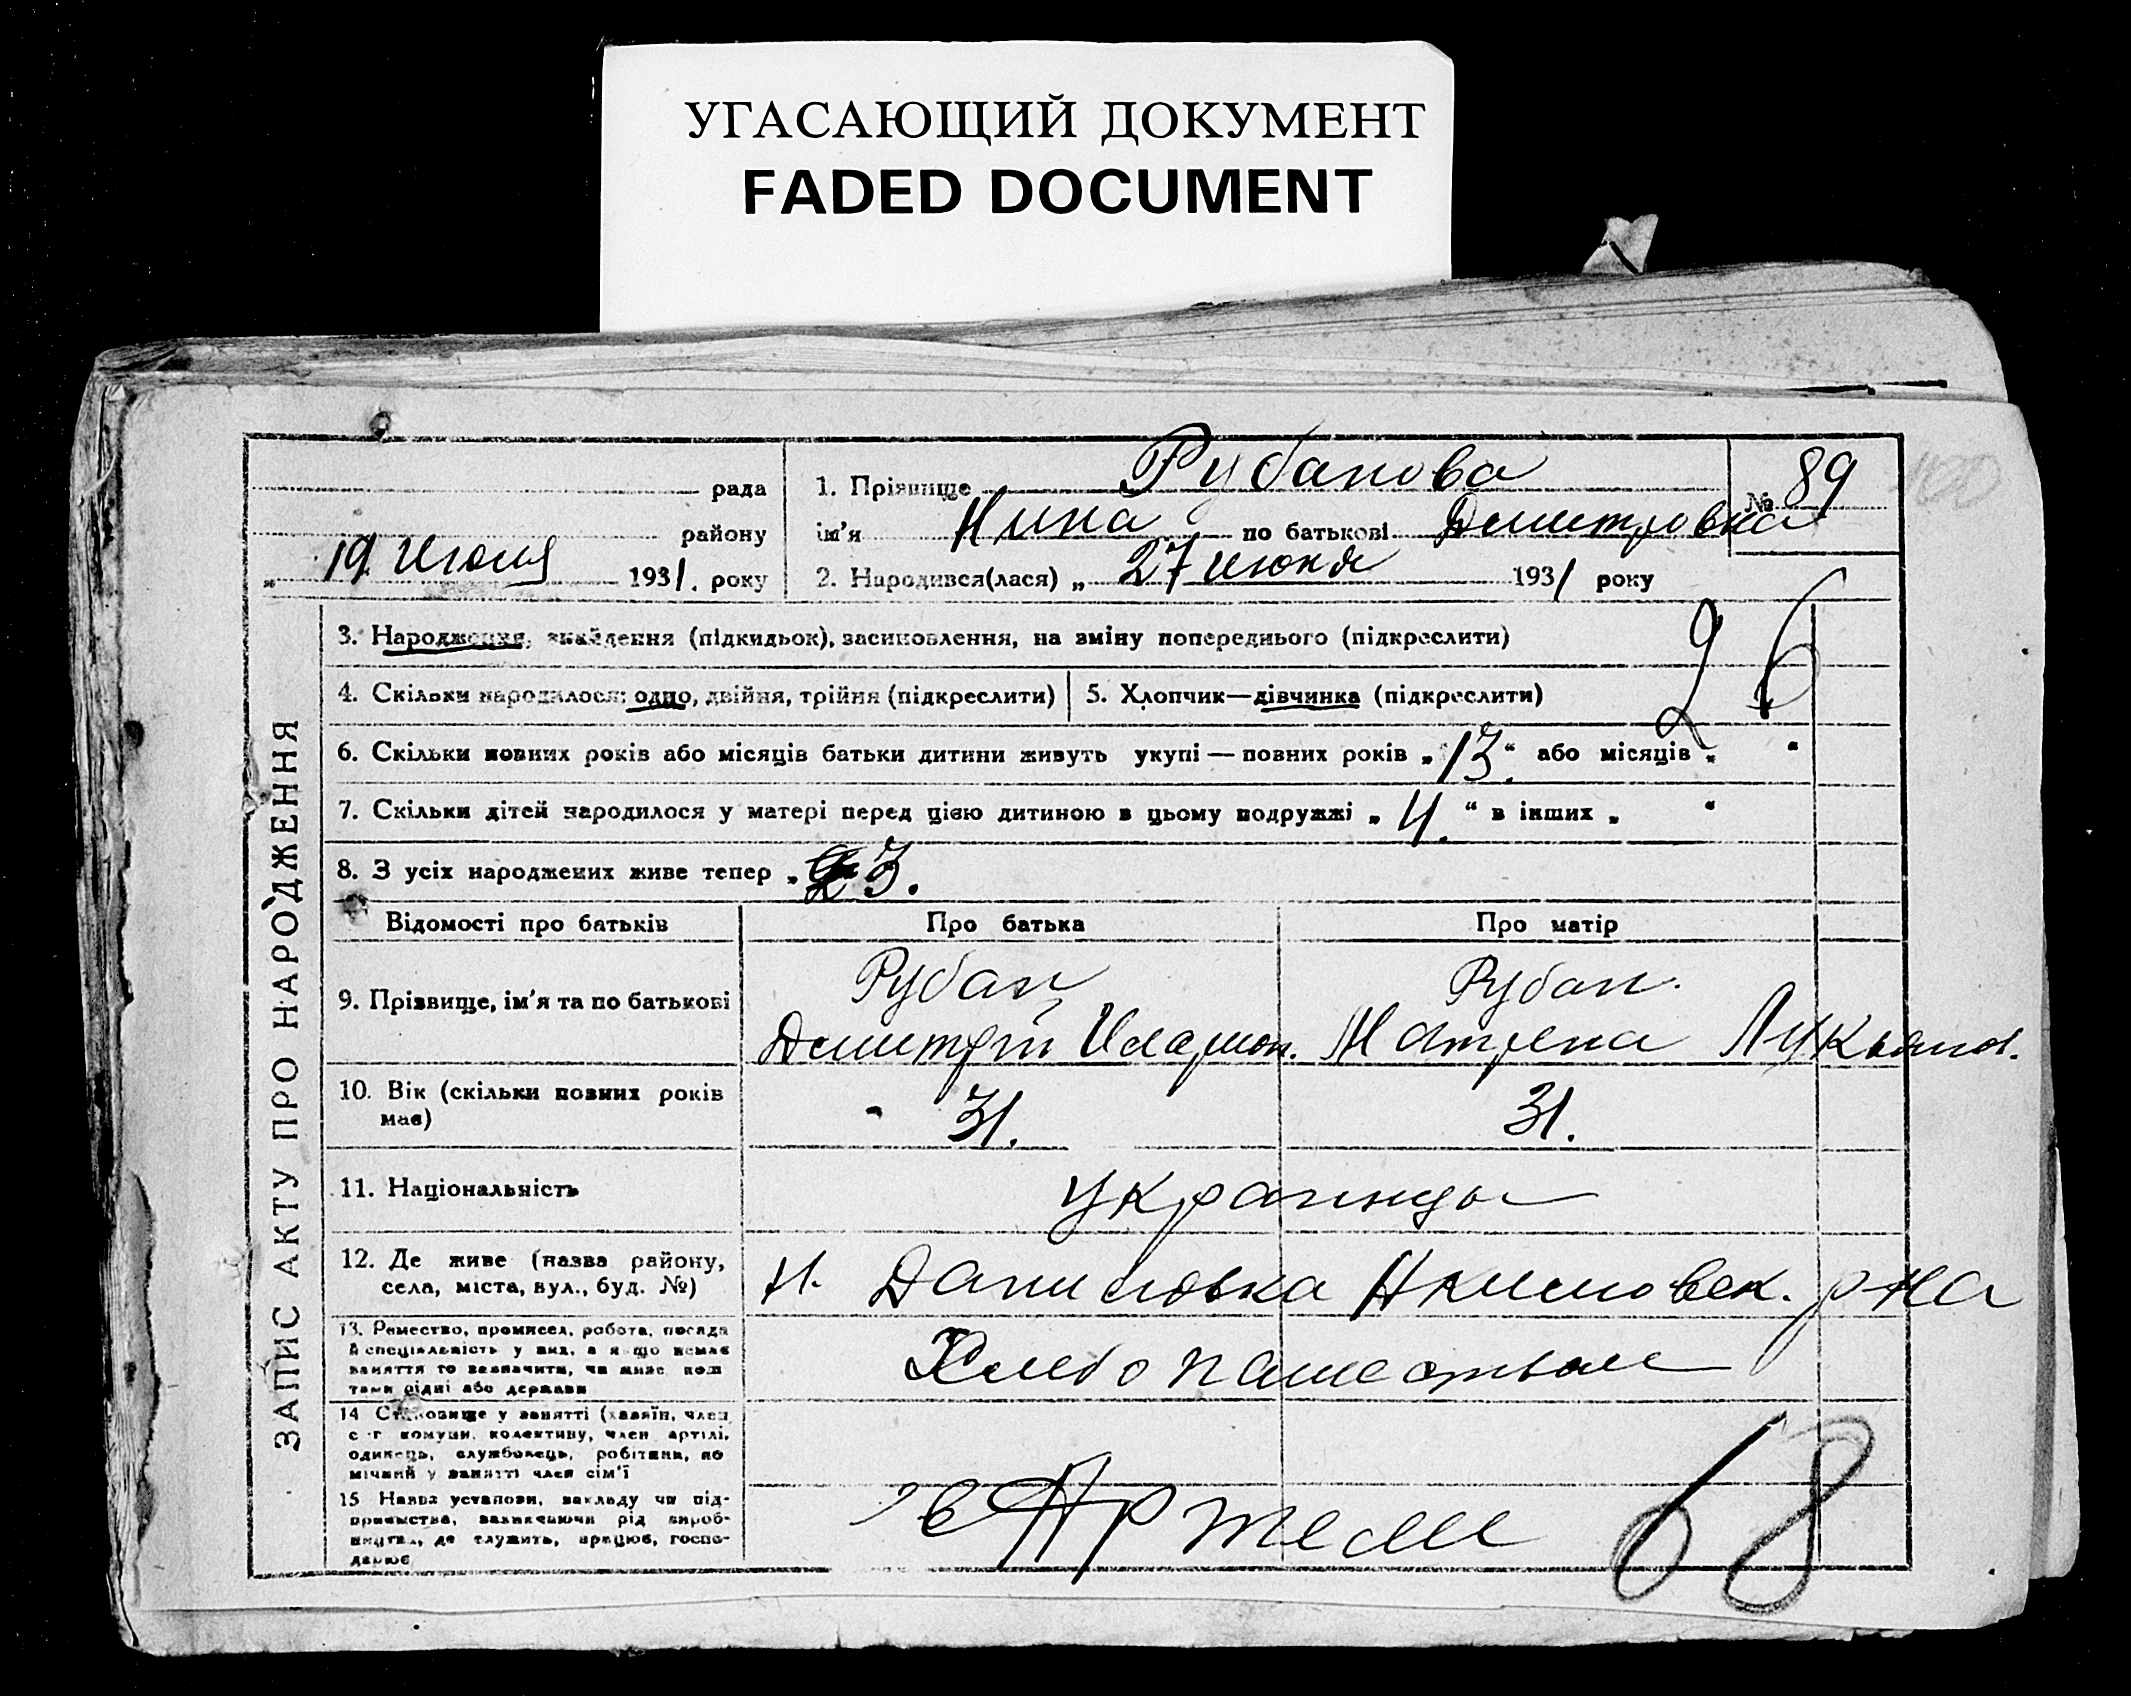 УГАСАЮЩИЙ ДОКУМЕНТ
FADED DOCUMENT
рада
району
„ 19 Июля 1931. року
1. Прізвище Рубанова
ім'я Нина по батькові Дмитровна
№ 89
2. Народився(лася) „ 27 июня 1931 року
100
3. Народження, знайдення (підкидьок), засиновлення, на зміну попереднього (підкреслити)
26
4. Скільки народилося: одно, двійня, трійня (підкреслити)
5. Хлопчик—дівчинка (підкреслити)
6. Скільки повних років або місяців батьки дитини живуть укупі — повних років „ 13. “ або місяців „ “
7. Скільки дітей народилося у матері перед цією дитиною в цьому подружжі „ 4. “ в інших „ “
8. З усіх народжених живе тепер „ 3.
ЗАПИС АКТУ ПРО НАРОДЖЕННЯ
Відомості про батьків
Про батька
Про матір
9. Прізвище, ім'я та по батькові
Рубан
Дмитрий Иларион.
Рубан.
Матрена Лукьянов.
10. Вік (скільки повних років
має)
31.
31.
11. Національність
украинцы
12. Де живе (назва району,
села, міста, вул., буд. №)
Н. Даниловка Акимовск. р-на
13. Ремество, промисел, робота, посада
й спеціяльність у них, а якщо немає
заняття то зазначити, чи живе кош
тами рідні або держави
Хлебопашеством
14 Становище у занятті (хазяїн, член
с-г комуни, колективу, член артілі,
одинець, службовець, робітник, по
мічний у занятті член сім'ї
15 Назва установи, закладу чи під-
приємства, зазначаючи рід вироб-
ництва, де служить, працює, госпо-
дарює
в Артеле
68